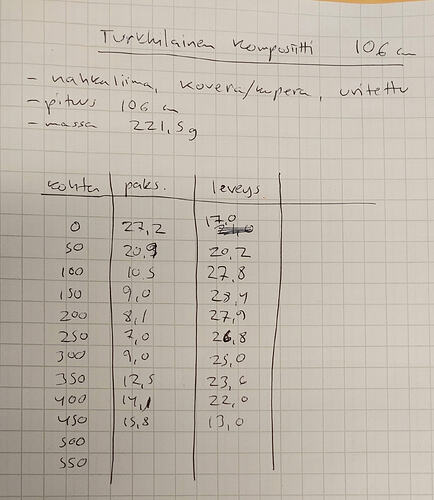 Turkkilainen komposiitti 106 cm
- nahkaliima, kovera/kupera, uritettu
- pituus 106 cm
- massa 221,5g
kohta paks. leveys.
0 27,2 17,0
50 20,9 20,2
100 10,5 27,8
150 9,0 28,4
200 8,1 27,9
250 7,0 26,8
300 9,0 25,0
350 12,5 23,6
400 14,1 22,0
450 15,8 13,0
500
550